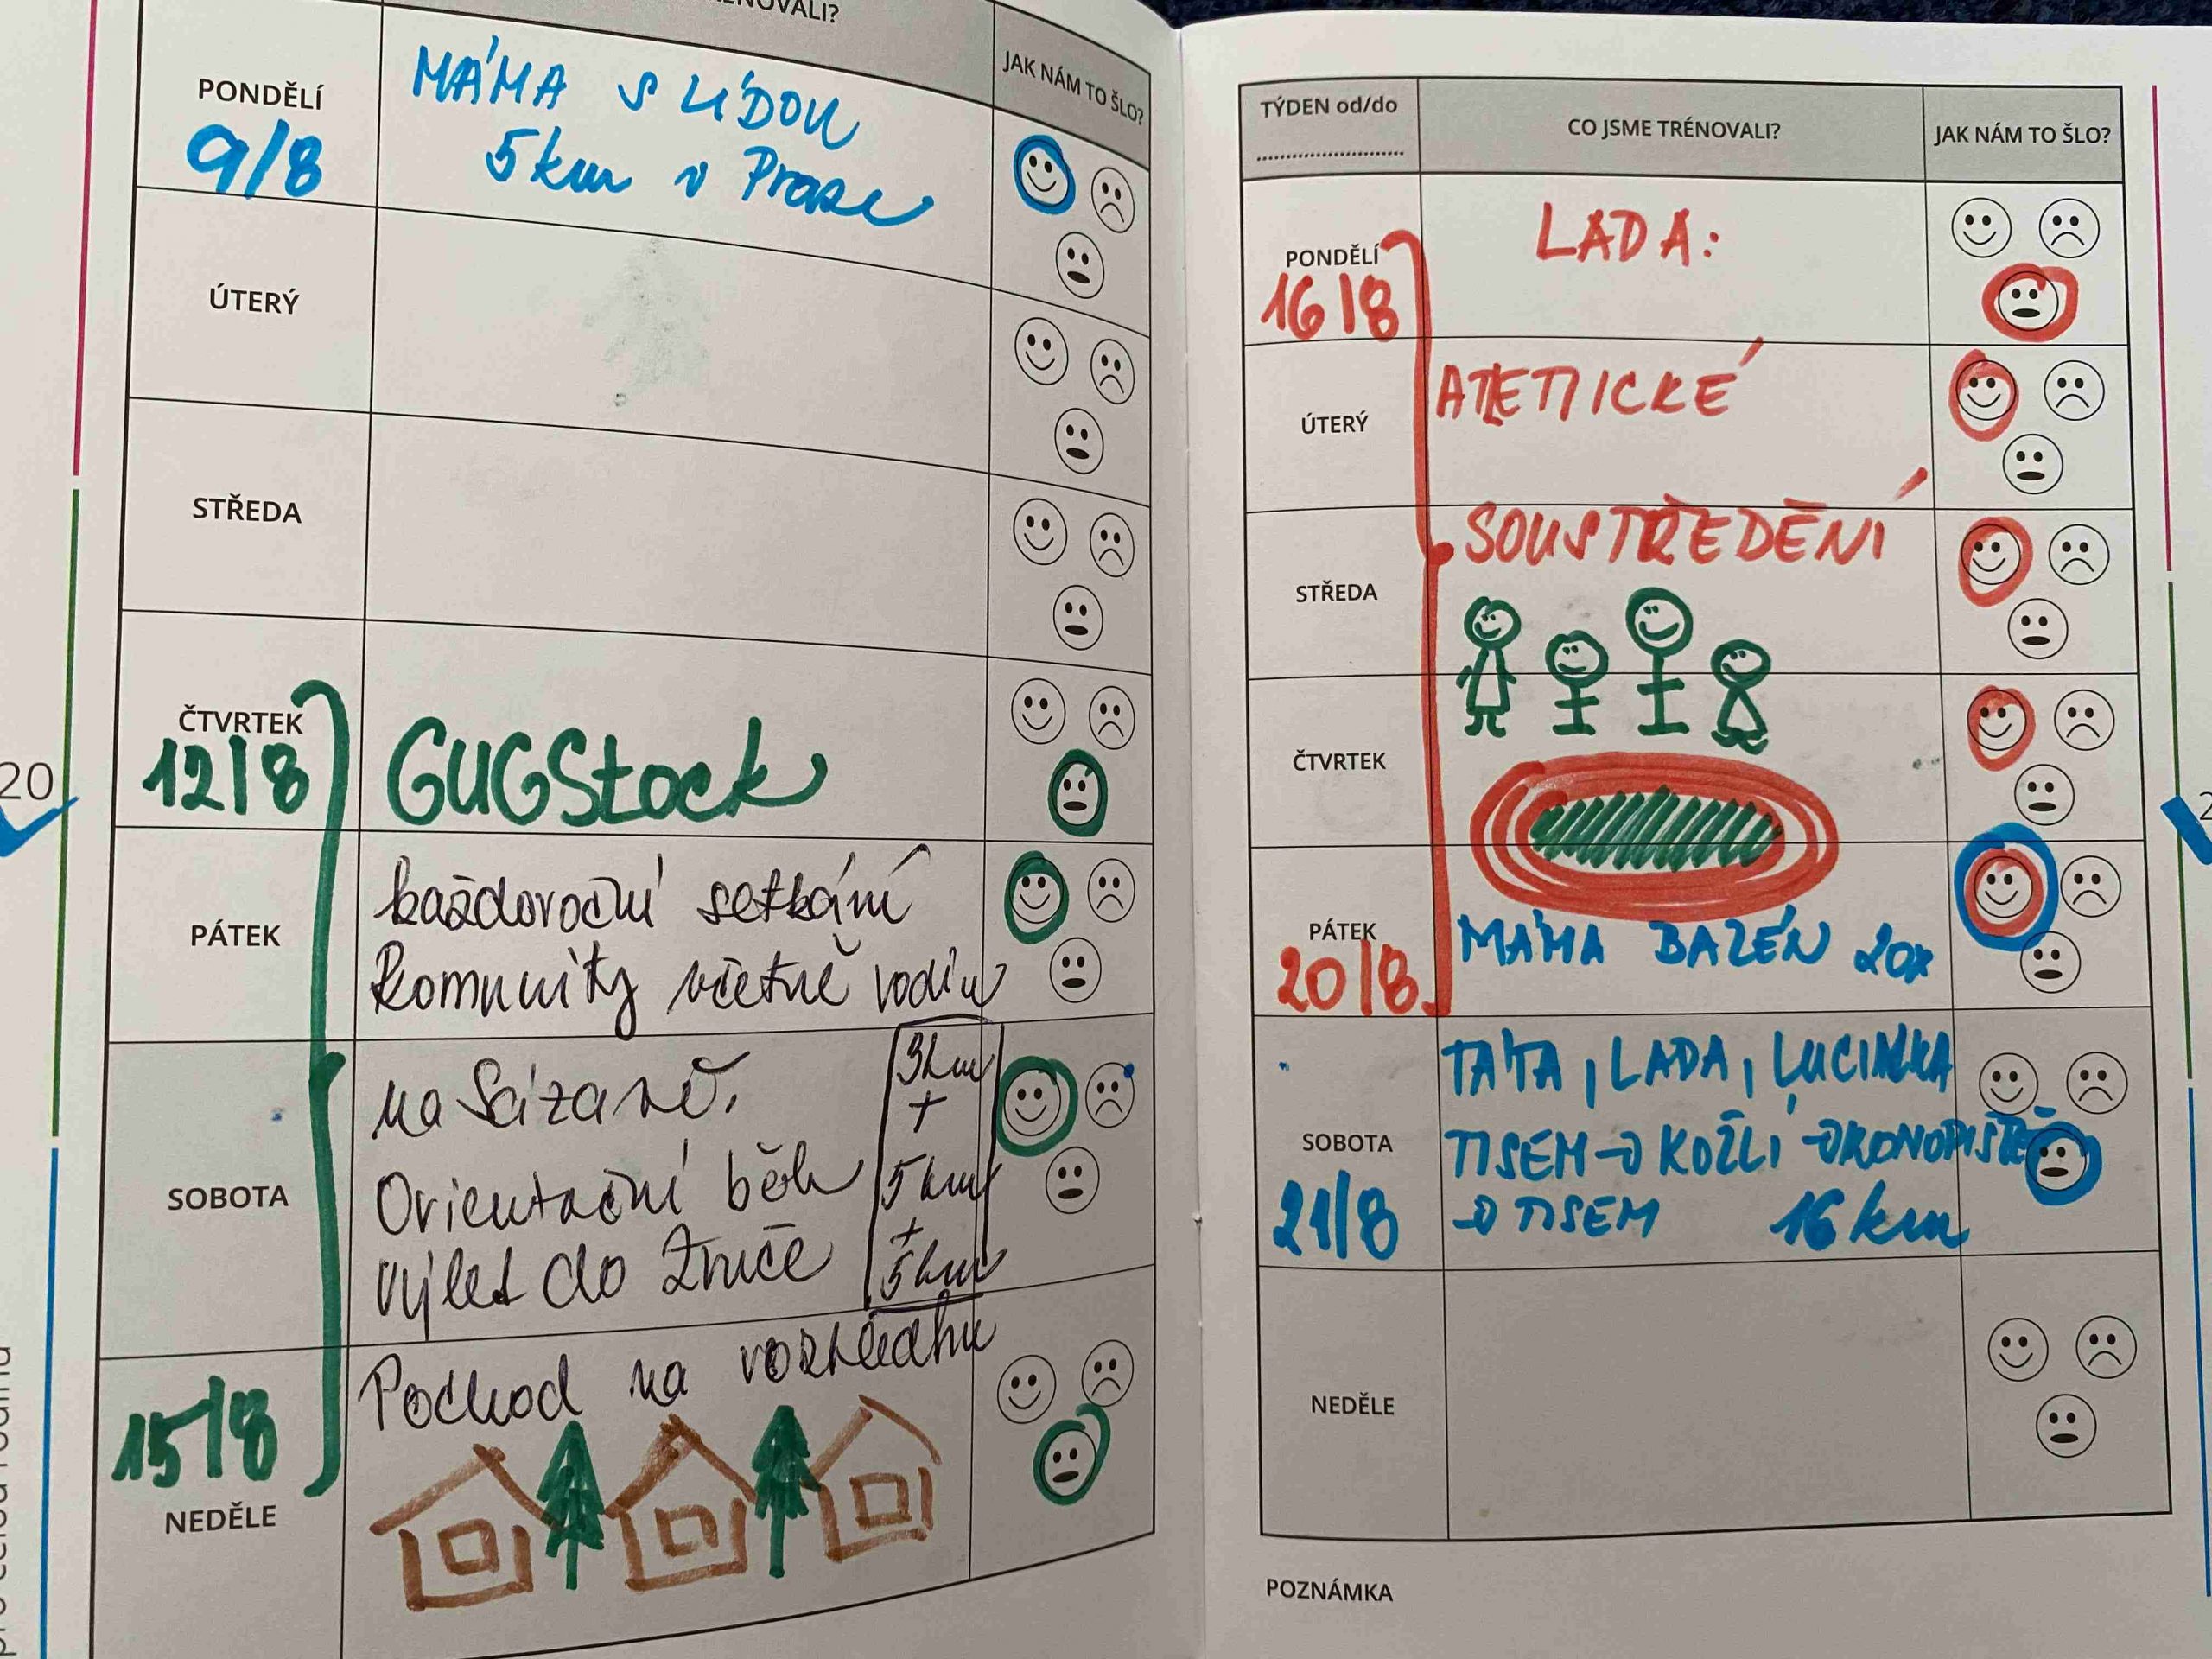 TRÉNOVALI?
JAK NÁM TO ŠLO?
PONDĚLÍ
9/8
MÁMA S LÍDOU
5km v Praze
ÚTERÝ
STŘEDA
ČTVRTEK
12/8
GUGStock
PÁTEK
každoroční setkání
komunity včetně rodin
SOBOTA
na Sázavě.
Orientační běh
výlet do Zruče
3km
+
5km
+
5km
15/8
NEDĚLE
Pochod na rozhlednu
20
TÝDEN od/do
CO JSME TRÉNOVALI?
JAK NÁM TO ŠLO?
PONDĚLÍ
16/8
LADA:
ÚTERÝ
ATLETICKÉ
STŘEDA
SOUSTŘEDĚNÍ
ČTVRTEK
PÁTEK
20/8
MÁMA BAZÉN 20x
SOBOTA
21/8
TÁTA, LADA, LUCINKA
TISEM → KOŽLÍ → KONOPIŠTĚ
→ TISEM 16 km
NEDĚLE
POZNÁMKA